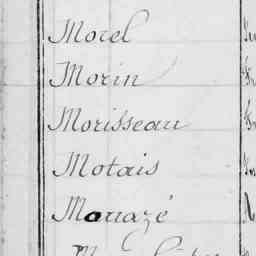 Morel
Morin
Morisseau
Motais
Mouazé